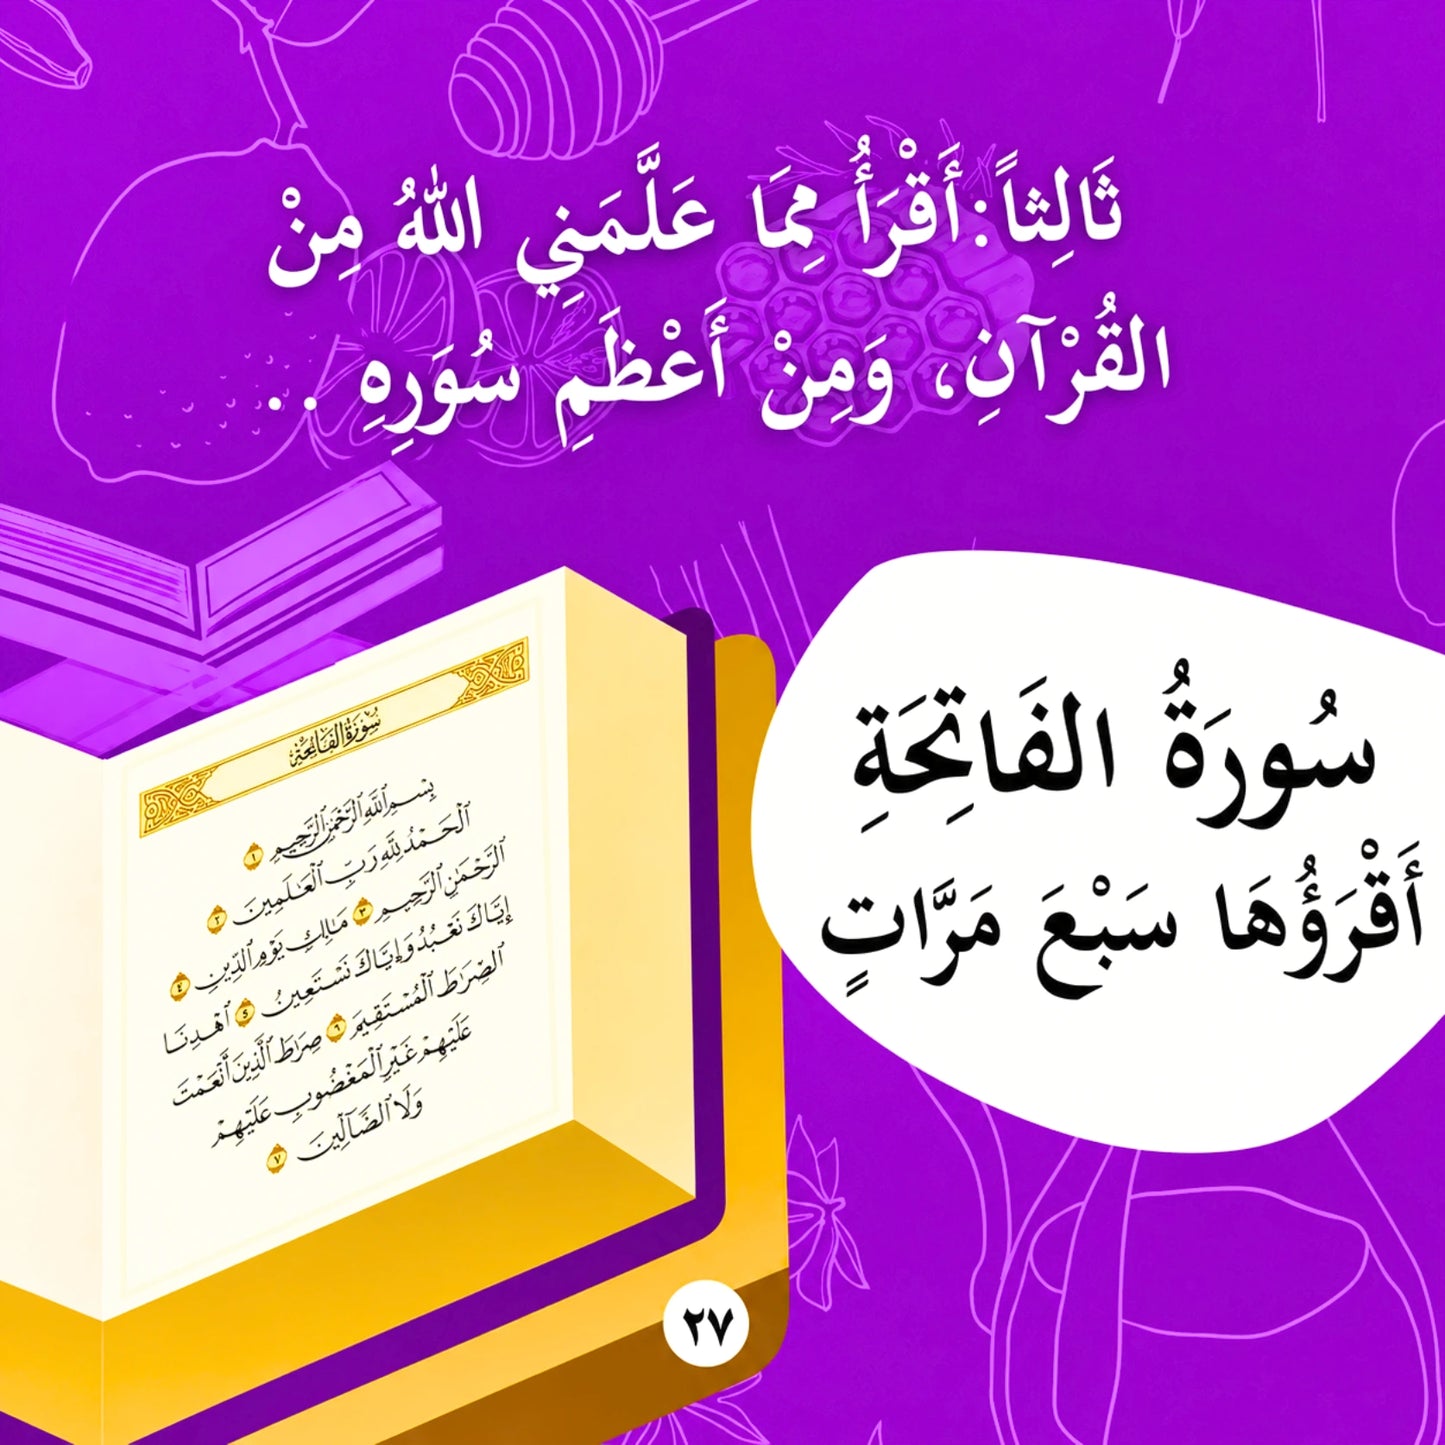 ثَالِثاً: أَقْرَأُ مِمَّا عَلَّمَنِي اللهُ مِنْ
القُرْآنِ، وَمِنْ أَعْظَمِ سُوَرِهِ ..
سُورَةُ الفَاتِحَةِ
أَقْرَؤُهَا سَبْعَ مَرَّاتٍ
سُورَةُ الفَاتِحَةِ
بِسْمِ ٱللَّهِ ٱلرَّحْمَٰنِ ٱلرَّحِيمِ ١
ٱلْحَمْدُ لِلَّهِ رَبِّ ٱلْعَٰلَمِينَ ٢
ٱلرَّحْمَٰنِ ٱلرَّحِيمِ ٣ مَٰلِكِ يَوْمِ ٱلدِّينِ ٤
إِيَّاكَ نَعْبُدُ وَإِيَّاكَ نَسْتَعِينُ ٥ ٱهْدِنَا
ٱلصِّرَٰطَ ٱلْمُسْتَقِيمَ ٦ صِرَٰطَ ٱلَّذِينَ أَنْعَمْتَ
عَلَيْهِمْ غَيْرِ ٱلْمَغْضُوبِ عَلَيْهِمْ
وَلَا ٱلضَّآلِّينَ ٧
٢٧